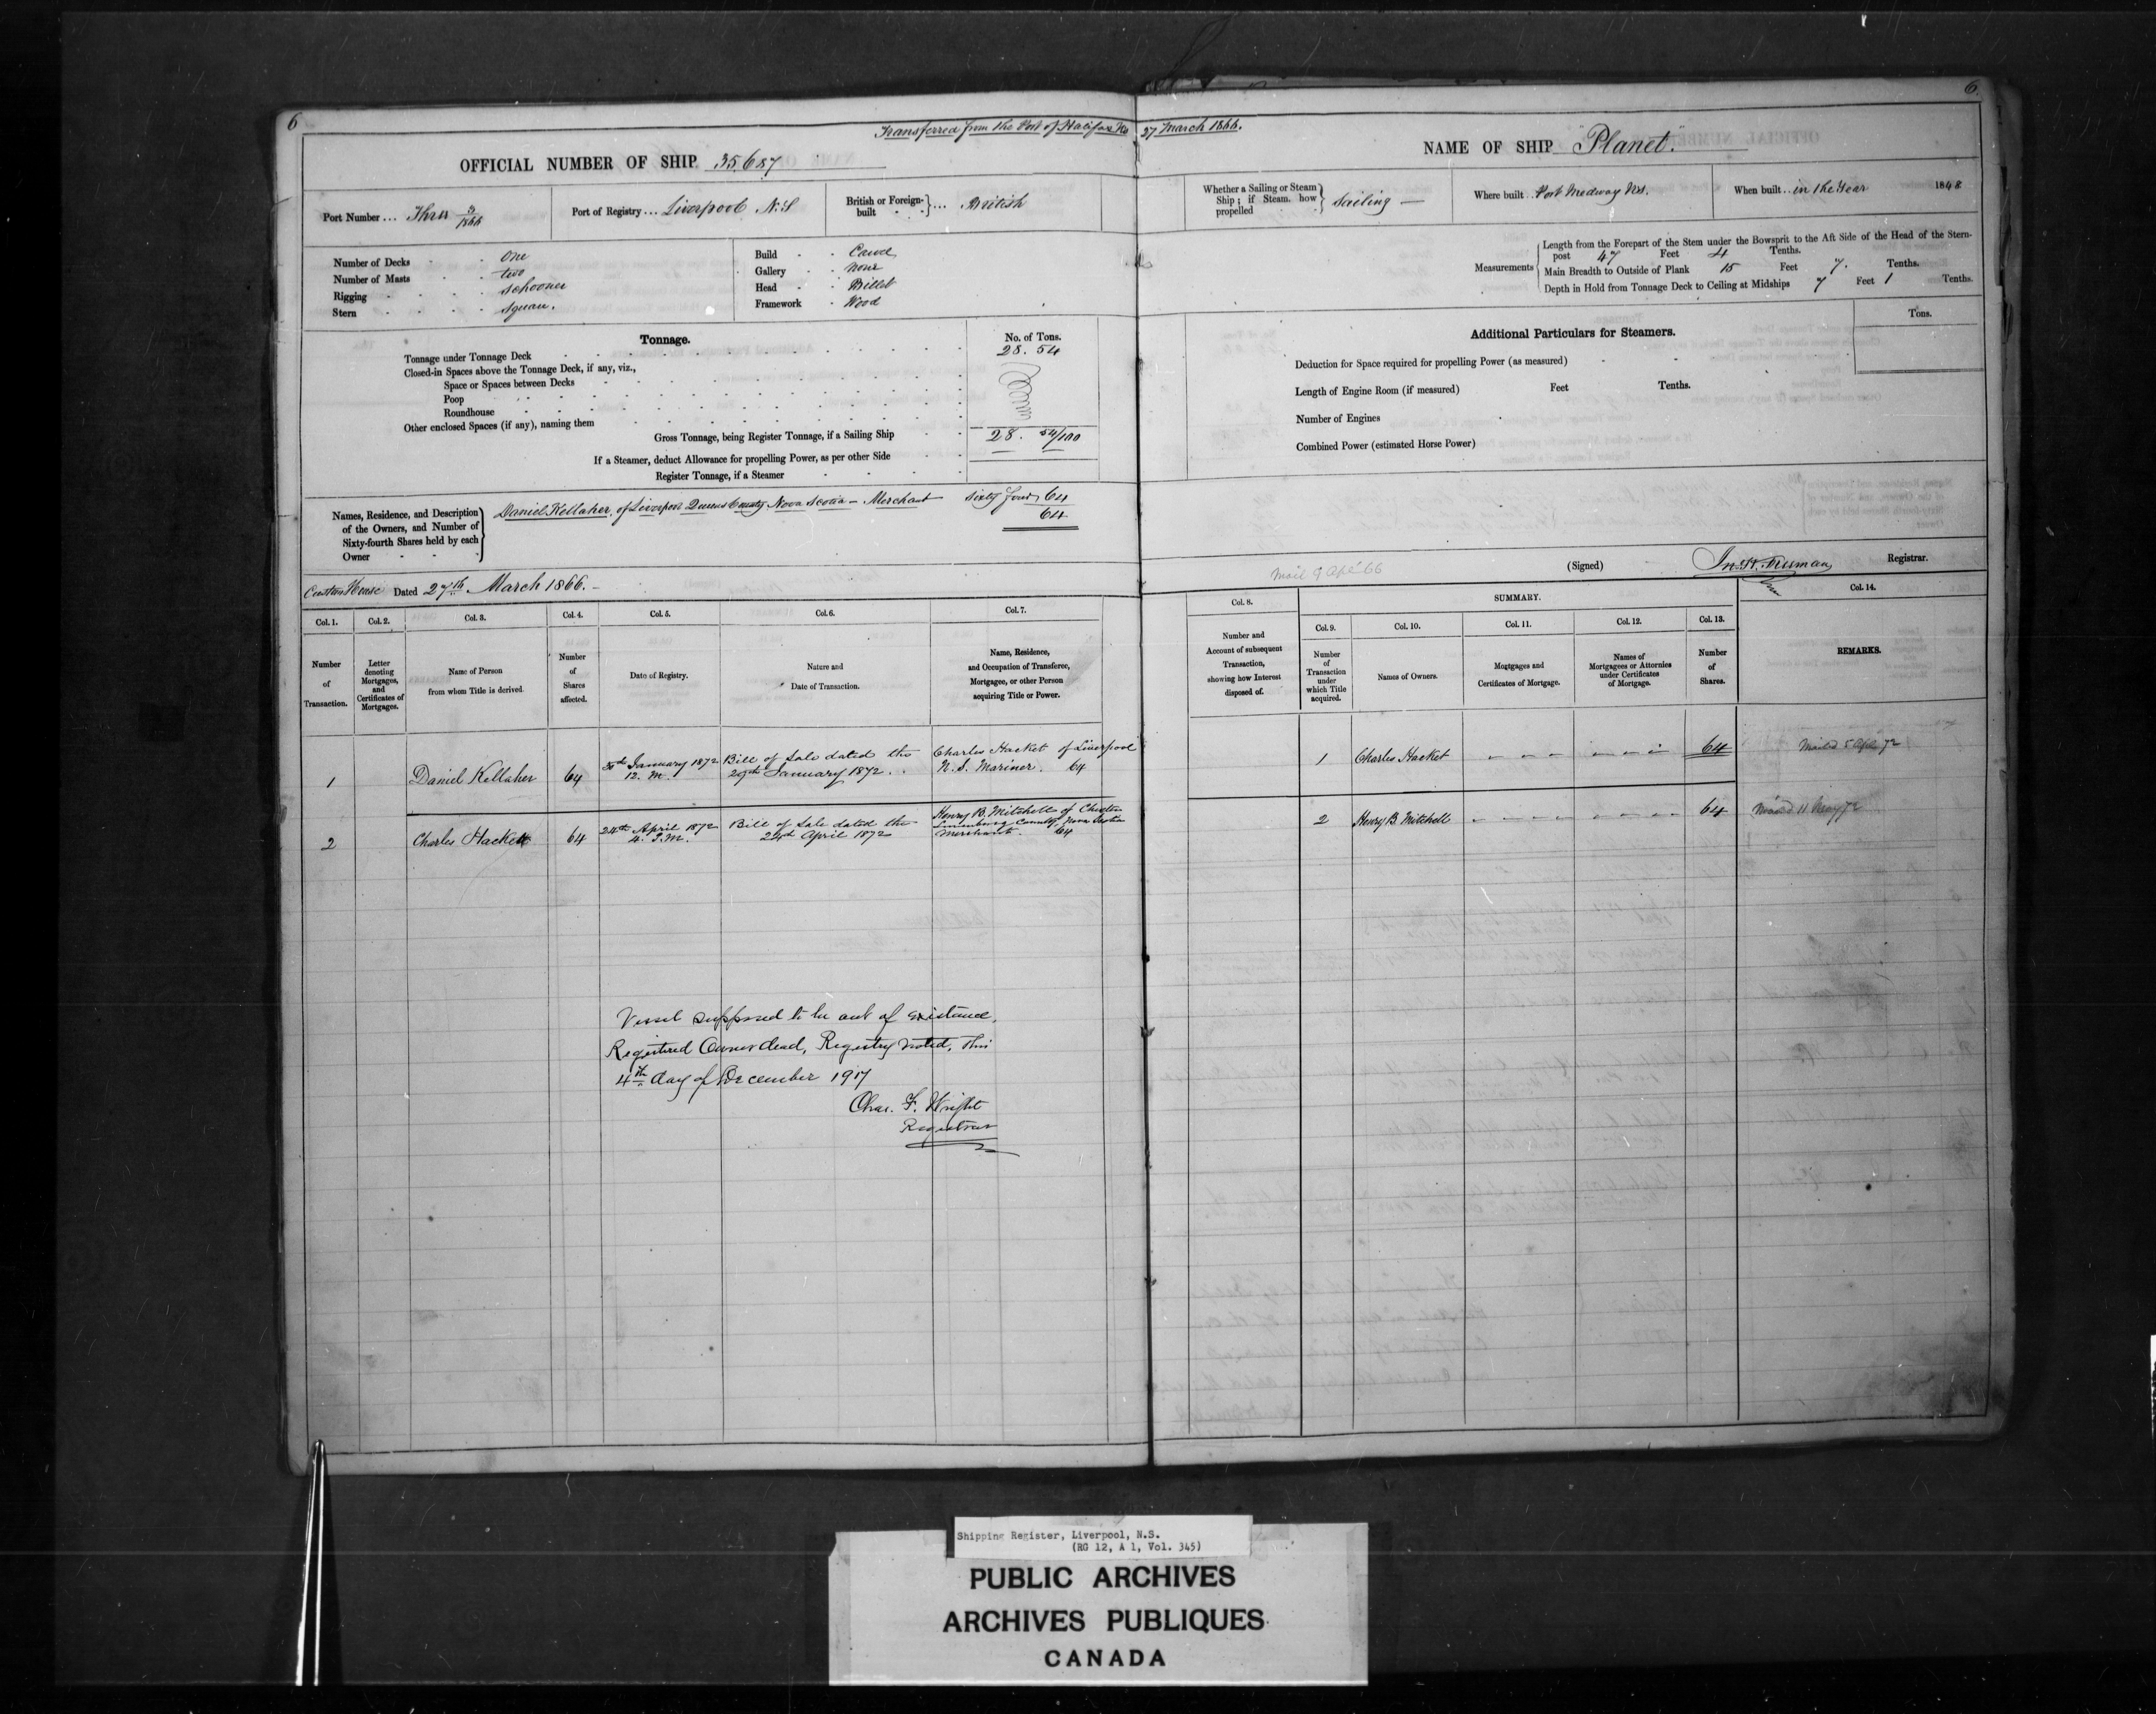 6
6
Transferred from the Port of Halifax NS 27 March 1866.
OFFICIAL NUMBER OF SHIP 35,687
NAME OF SHIP "Planet."
Port Number ... Three 3/1866
Port of Registry ... Liverpool N.S
British or Foreign-built } ... British
Whether a Sailing or Steam Ship; if Steam, how propelled } Sailing —
Where built .. Port Medway N.S.
When built .. in the Year 1848
Number of Decks One
Number of Masts two
Rigging Schooner
Stern Square.
Build Carvel
Gallery None
Head Billet
Framework Wood
Measurements
Length from the Forepart of the Stem under the Bowsprit to the Aft Side of the Head of the Stern-
post 47 Feet 4 Tenths.
Main Breadth to Outside of Plank 15 Feet 7. Tenths.
Depth in Hold from Tonnage Deck to Ceiling at Midships 7 Feet 1 Tenths.
Tonnage.
No. of Tons.
Tonnage under Tonnage Deck 28. 54
Closed-in Spaces above the Tonnage Deck, if any, viz.,
Space or Spaces between Decks
Poop
Roundhouse
Other enclosed Spaces (if any), naming them
Gross Tonnage, being Register Tonnage, if a Sailing Ship 28. 54/100
If a Steamer, deduct Allowance for propelling Power, as per other Side
Register Tonnage, if a Steamer
Additional Particulars for Steamers.
Tons.
Deduction for Space required for propelling Power (as measured)
Length of Engine Room (if measured) Feet Tenths.
Number of Engines
Combined Power (estimated Horse Power)
Names, Residence, and Description
of the Owners, and Number of
Sixty-fourth Shares held by each
Owner
Daniel Kellaher, of Liverpool Queens County Nova Scotia — Merchant Sixty four, 64
64
Custom House Dated 27th March 1866. —
Mail 9 Apl 66
(Signed) Registrar.
Col. 1.
Col. 2.
Col. 3.
Col. 4.
Col. 5.
Col. 6.
Col. 7.
Col. 8.
SUMMARY.
Col. 9.
Col. 10.
Col. 11.
Col. 12.
Col. 13.
Col. 14.
Number of Transaction.
Letter denoting Mortgages, and Certificates of Mortgages.
Name of Person from whom Title is derived.
Number of Shares affected.
Date of Registry.
Nature and Date of Transaction.
Name, Residence, and Occupation of Transferee, Mortgagee, or other Person acquiring Title or Power.
Number and Account of subsequent Transaction, showing how Interest disposed of.
Number of Transaction under which Title acquired.
Names of Owners.
Mortgages and Certificates of Mortgage.
Names of Mortgagees or Attornies under Certificates of Mortgage.
Number of Shares.
REMARKS.
1 Daniel Kellaher 64 30th January 1872 12. M. Bill of Sale dated the 29th January 1872 . . Charles Hacket of Liverpool N. S. Mariner. 64
1 Charles Hacket — — — — — — 64 Mailed 5 Apl 72
2 Charles Hackett 64 24th April 1872 4. P.M. Bill of Sale dated the 24th April 1872 Henry B. Mitchell of Chester Lunenburg County Nova Scotia Merchant. 64
2 Henry B. Mitchell — — — — — — — — 64 Mailed 11 May 72
Vessel supposed to be out of existance,
Registered Owner dead, Registry noted, this
4th day of December 1917
Chas. F. Wright
Registrar
Shipping Register, Liverpool, N.S.
(RG 12, A 1, Vol. 345)
PUBLIC ARCHIVES
ARCHIVES PUBLIQUES
CANADA